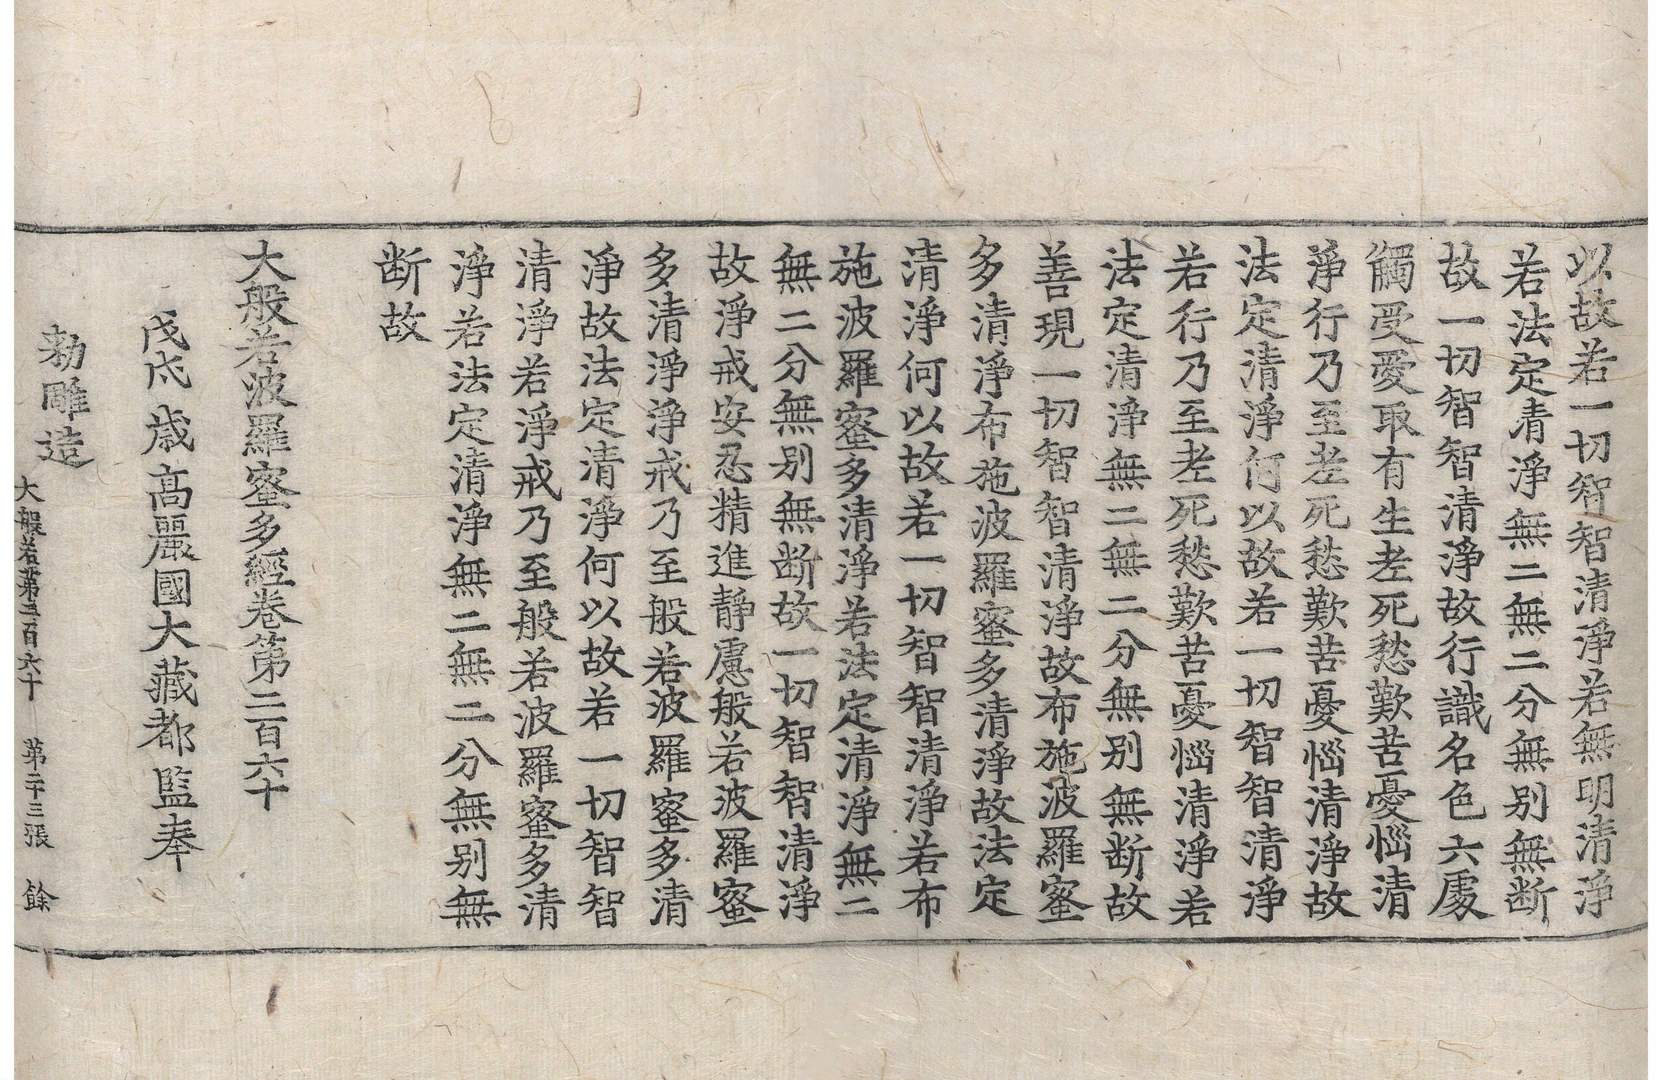 以故若一切智智清淨若無明清淨
若法定清淨無二無二分無别無断
故一切智智清淨故行識名色六處
觸受愛取有生老死愁歎苦憂惱清
淨行乃至老死愁歎苦憂惱清淨故
法定清淨何以故若一切智智清淨
若行乃至老死愁歎苦憂惱清淨若
法定清淨無二無二分無别無断故
善現一切智智清淨故布施波羅蜜
多清淨布施波羅蜜多清淨故法定
清淨何以故若一切智智清淨若布
施波羅蜜多清淨若法定清淨無二
無二分無别無断故一切智智清淨
故淨戒安忍精進靜慮般若波羅蜜
多清淨淨戒乃至般若波羅蜜多清
淨故法定清淨何以故若一切智智
清淨若淨戒乃至般若波羅蜜多清
淨若法定清淨無二無二分無别無
断故
大般若波羅蜜多經卷第二百六十
戊戌歲高麗國大藏都監奉
勑雕造
大般若第二百六十 第二十三張 餘